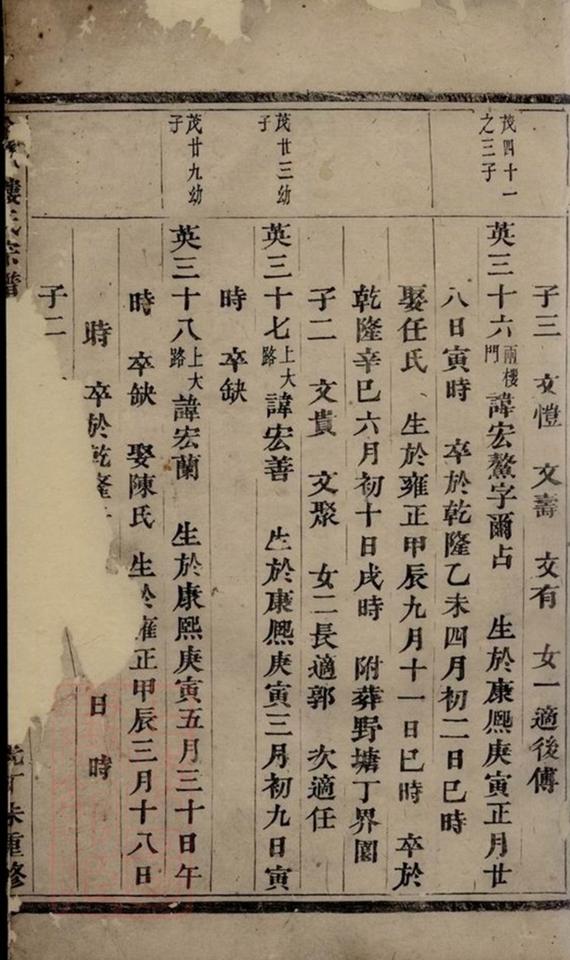 子三 文愷 文壽 文有 女一適後傅
茂四十一
之三子
英三十六兩樓門諱宏鰲字爾占 生於康熙庚寅正月廿
八日寅時 卒於乾隆乙未四月初二日巳時
娶任氏 生於雍正甲辰九月十一日巳時 卒於
乾隆辛巳六月初十日戌時 附葬野塘丁界園
子二 文貴 文聚 女二長適郭 次適任
茂廿三幼
子
英三十七上大路諱宏善 生於康熙庚寅三月初九日寅
時 卒缺
茂廿九幼
子
英三十八上大路諱宏蘭 生於康熙庚寅五月三十日午
時 卒缺 娶陳氏 生於雍正甲辰三月十八日
時 卒於乾隆 日 時
子二
樓氏宗譜 未重修